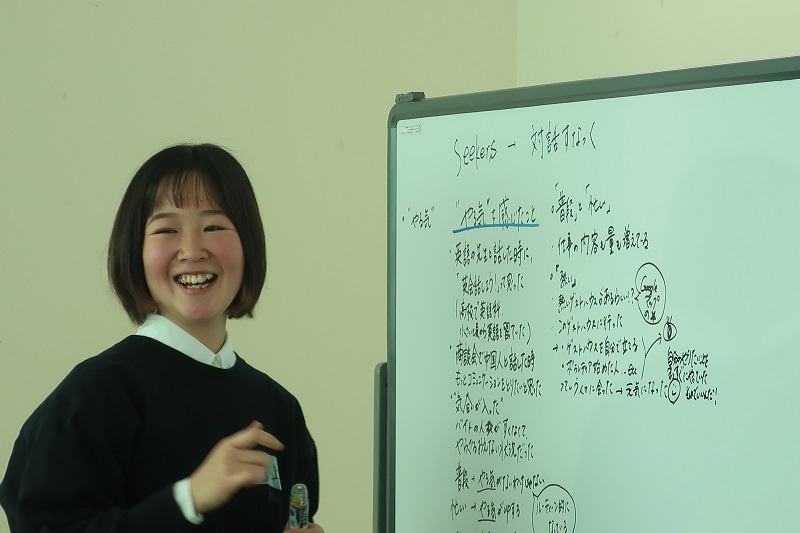 Seekers → 対話すなっく
・"やる気"
"やる気"を感じたこと
・英語の先生と話した時に、
「英会話しよう!」って思った
(高校で英語科
・商談会で中国人と話した時
もっとコミュニケーションをとりたいと思った
・"気合が入った"
バイトの人数が少なくて、
やらなきゃ
普段→やる気がないわけじゃない
忙しい→やる気が
ルーティーン的に
なっている
○「普段」と「忙しい」
・仕事の内容も量も増えてる
・「熱い」
熱いゲストハウスがあるらしい!?
Google
マップ
の
このゲストハウスに行った
→・ゲストハウスを自分で立てる
・ボランティア始めた人. etc
っていう人々に会った→元気になった
自分のやりたいことを